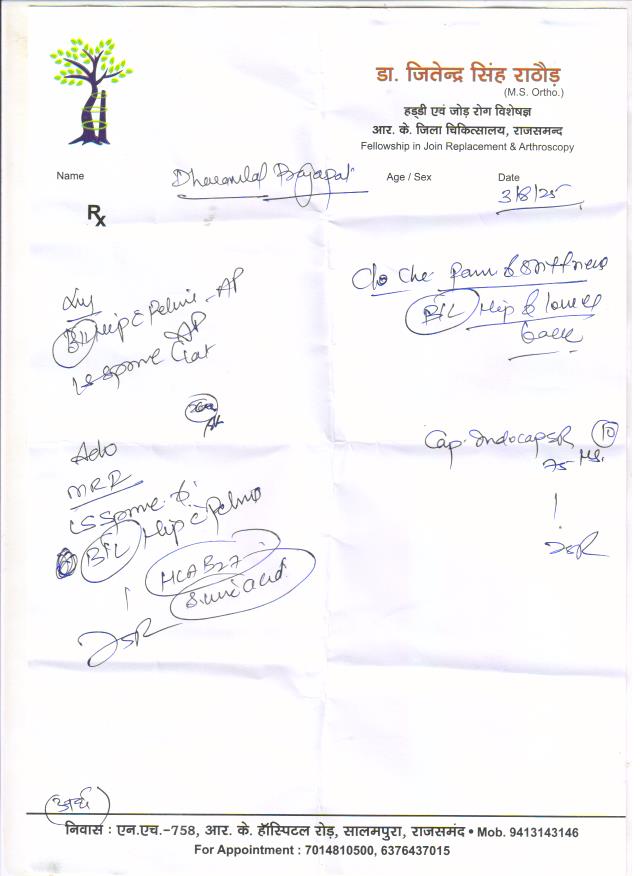 डा. जितेन्द्र सिंह राठौड़
(M.S. Ortho.)
हड्डी एवं जोड़ रोग विशेषज्ञ
आर. के. जिला चिकित्सालय, राजसमन्द
Fellowship in Join Replacement & Arthroscopy
Name Age / Sex Date
3/8/25
Rx
B/L Hip c Pelvis - AP
AP
LS spine Lat
B/L Hip & lower
Back
Cap. Indocap SR 10
75 mg.
Adv
MRI
LS spine &
B/L Hip c Pelvis
HLAB27
S. uric acid
निवास : एन.एच.-758, आर. के. हॉस्पिटल रोड़, सालमपुरा, राजसमंद • Mob. 9413143146
For Appointment : 7014810500, 6376437015